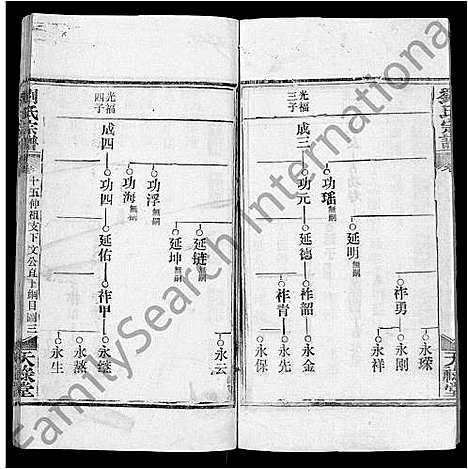 劉氏宗譜
光福三子
成三
功元
功瑶無嗣
延德
延明無嗣
祚韶
祚青
祚勇
永琛
永剛
永祥
永金
永先
永保
天祿堂
光福四子
成四
功四
功海無嗣
功浮無嗣
延佑
延坤無嗣
延鏈無嗣
祚甲
永云
永继
永熬
永生
劉氏宗譜
十五仲祖支下文公真上嗣目圖三
天祿堂
FamilySearch International